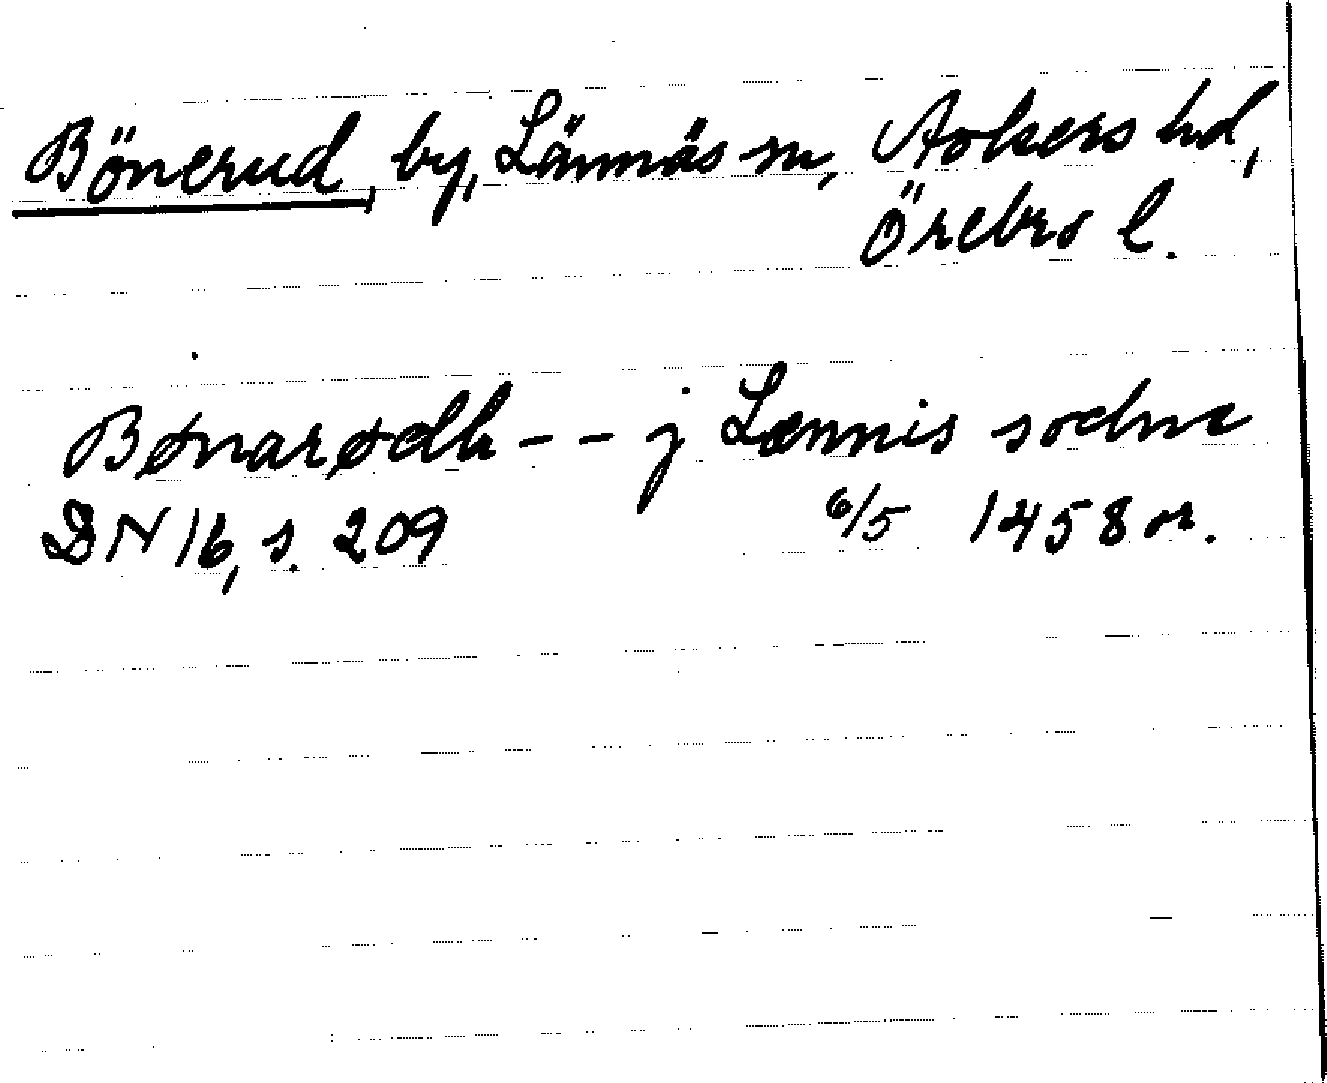 Bönerud, by, Lännäs sn, Askers hd,
Örebro l.
Bønarødh - - j Lænnis sochne
DN 16, s. 209 6/5 1458 or.